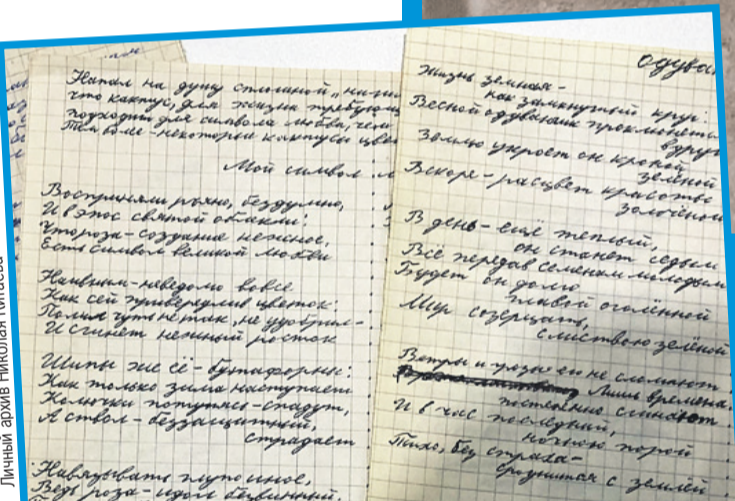 Напал на душу сплошной
что кактус, для жизни
подходит для символа любви, чем
Тем более - некоторые кактусы
Мой символ
Восприняли рьяно, бездумно,
И в эпос святой облекли:
Что роза - созданье нежное,
Есть символ великой любви
Наивным - неведомо вовсе
Как сей привередлив цветок:
Полил чуть не так, не удобрил -
И сгинет нежный росток
Шипы же её - бутафорны:
Как только зима наступает
Колючки попутно спадут,
А ствол - беззащитный,
страдает
Навязывать глупо иное,
Ведь роза - идол безвинный,
Одува
Жизнь земная -
как замкнутый круг:
Весной одуванчик проклюнется
вдруг
Землю укроет он кроной
зелёной
Вскоре - расцвет красотою
золочёной
В день - ещё тёплый,
он станет седым
Всё передав семенам молодым
Будет он долго
главой оголённой
Мир созерцать,
с листвою зелёной
Ветры и грозы его не сломают
Лишь времена
постепенно сминают
И в час последний,
ночною порой
Тихо, без страха -
сроднится с землёй
Личный архив Николая Китаева